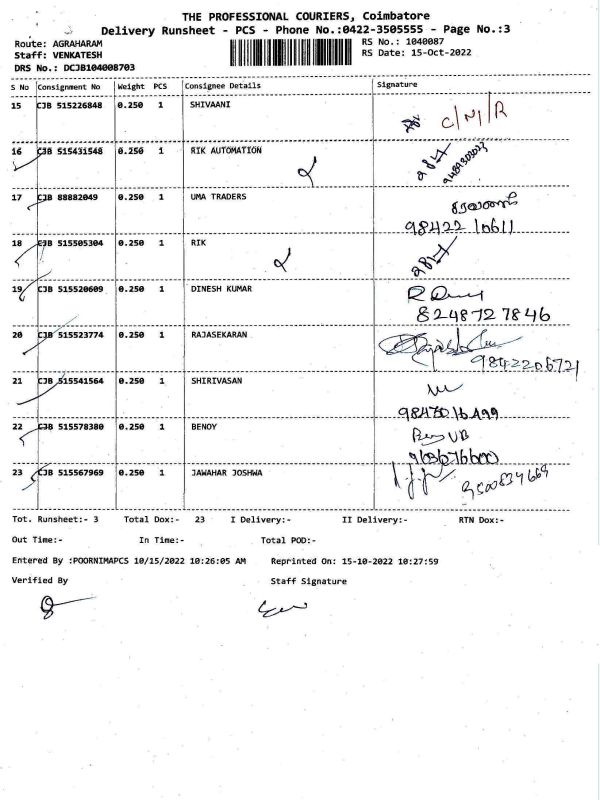 THE PROFESSIONAL COURIERS, Coimbatore
Delivery Runsheet - PCS - Phone No.:0422-3505555 - Page No.:3
Route: AGRAHARAM
RS No.: 1040087
Staff: VENKATESH
RS Date: 15-Oct-2022
DRS No.: DCJB104008703
S No Consignment No Weight PCS Consignee Details Signature
15 CJB 515226848 0.250 1 SHIVAANI C/N/R
16 CJB 515431548 0.250 1 RIK AUTOMATION
17 CJB 88882049 0.250 1 UMA TRADERS சரவணன்
98422 10611
18 CJB 515505304 0.250 1 RIK
19 CJB 515520609 0.250 1 DINESH KUMAR
8248727846
20 CJB 515523774 0.250 1 RAJASEKARAN
9842206721
21 CJB 515541564 0.250 1 SHIRIVASAN
9847016499
22 CJB 515578380 0.250 1 BENOY
23 CJB 515567969 0.250 1 JAWAHAR JOSHWA
9500834669
Tot. Runsheet:- 3 Total Dox:- 23 I Delivery:- II Delivery:- RTN Dox:-
Out Time:- In Time:- Total POD:-
Entered By :POORNIMAPCS 10/15/2022 10:26:05 AM Reprinted On: 15-10-2022 10:27:59
Verified By Staff Signature